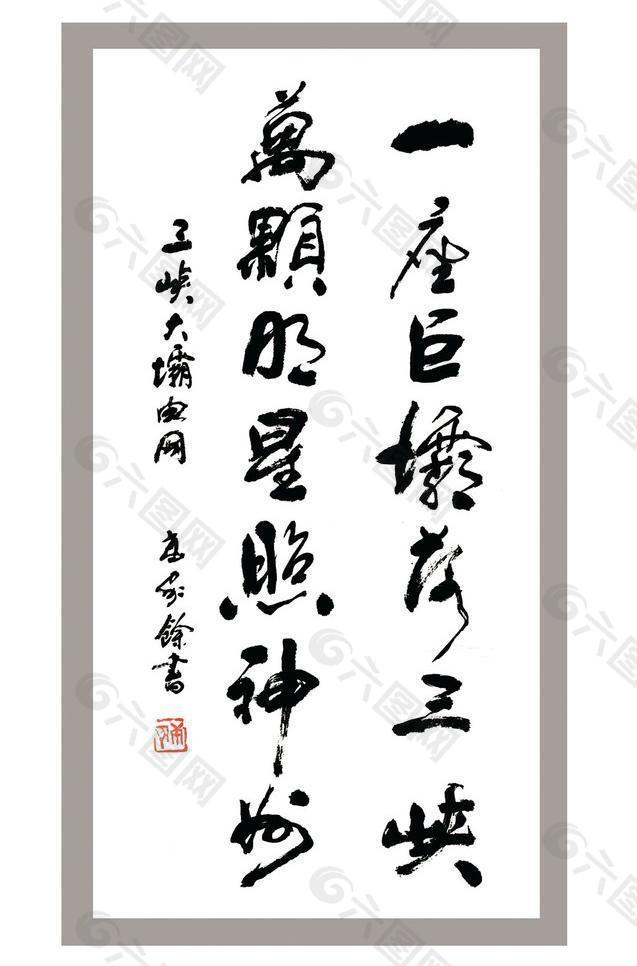 一座巨壩落三峡
萬顆明星照神州
三峡大壩电网
家餘書
六图网